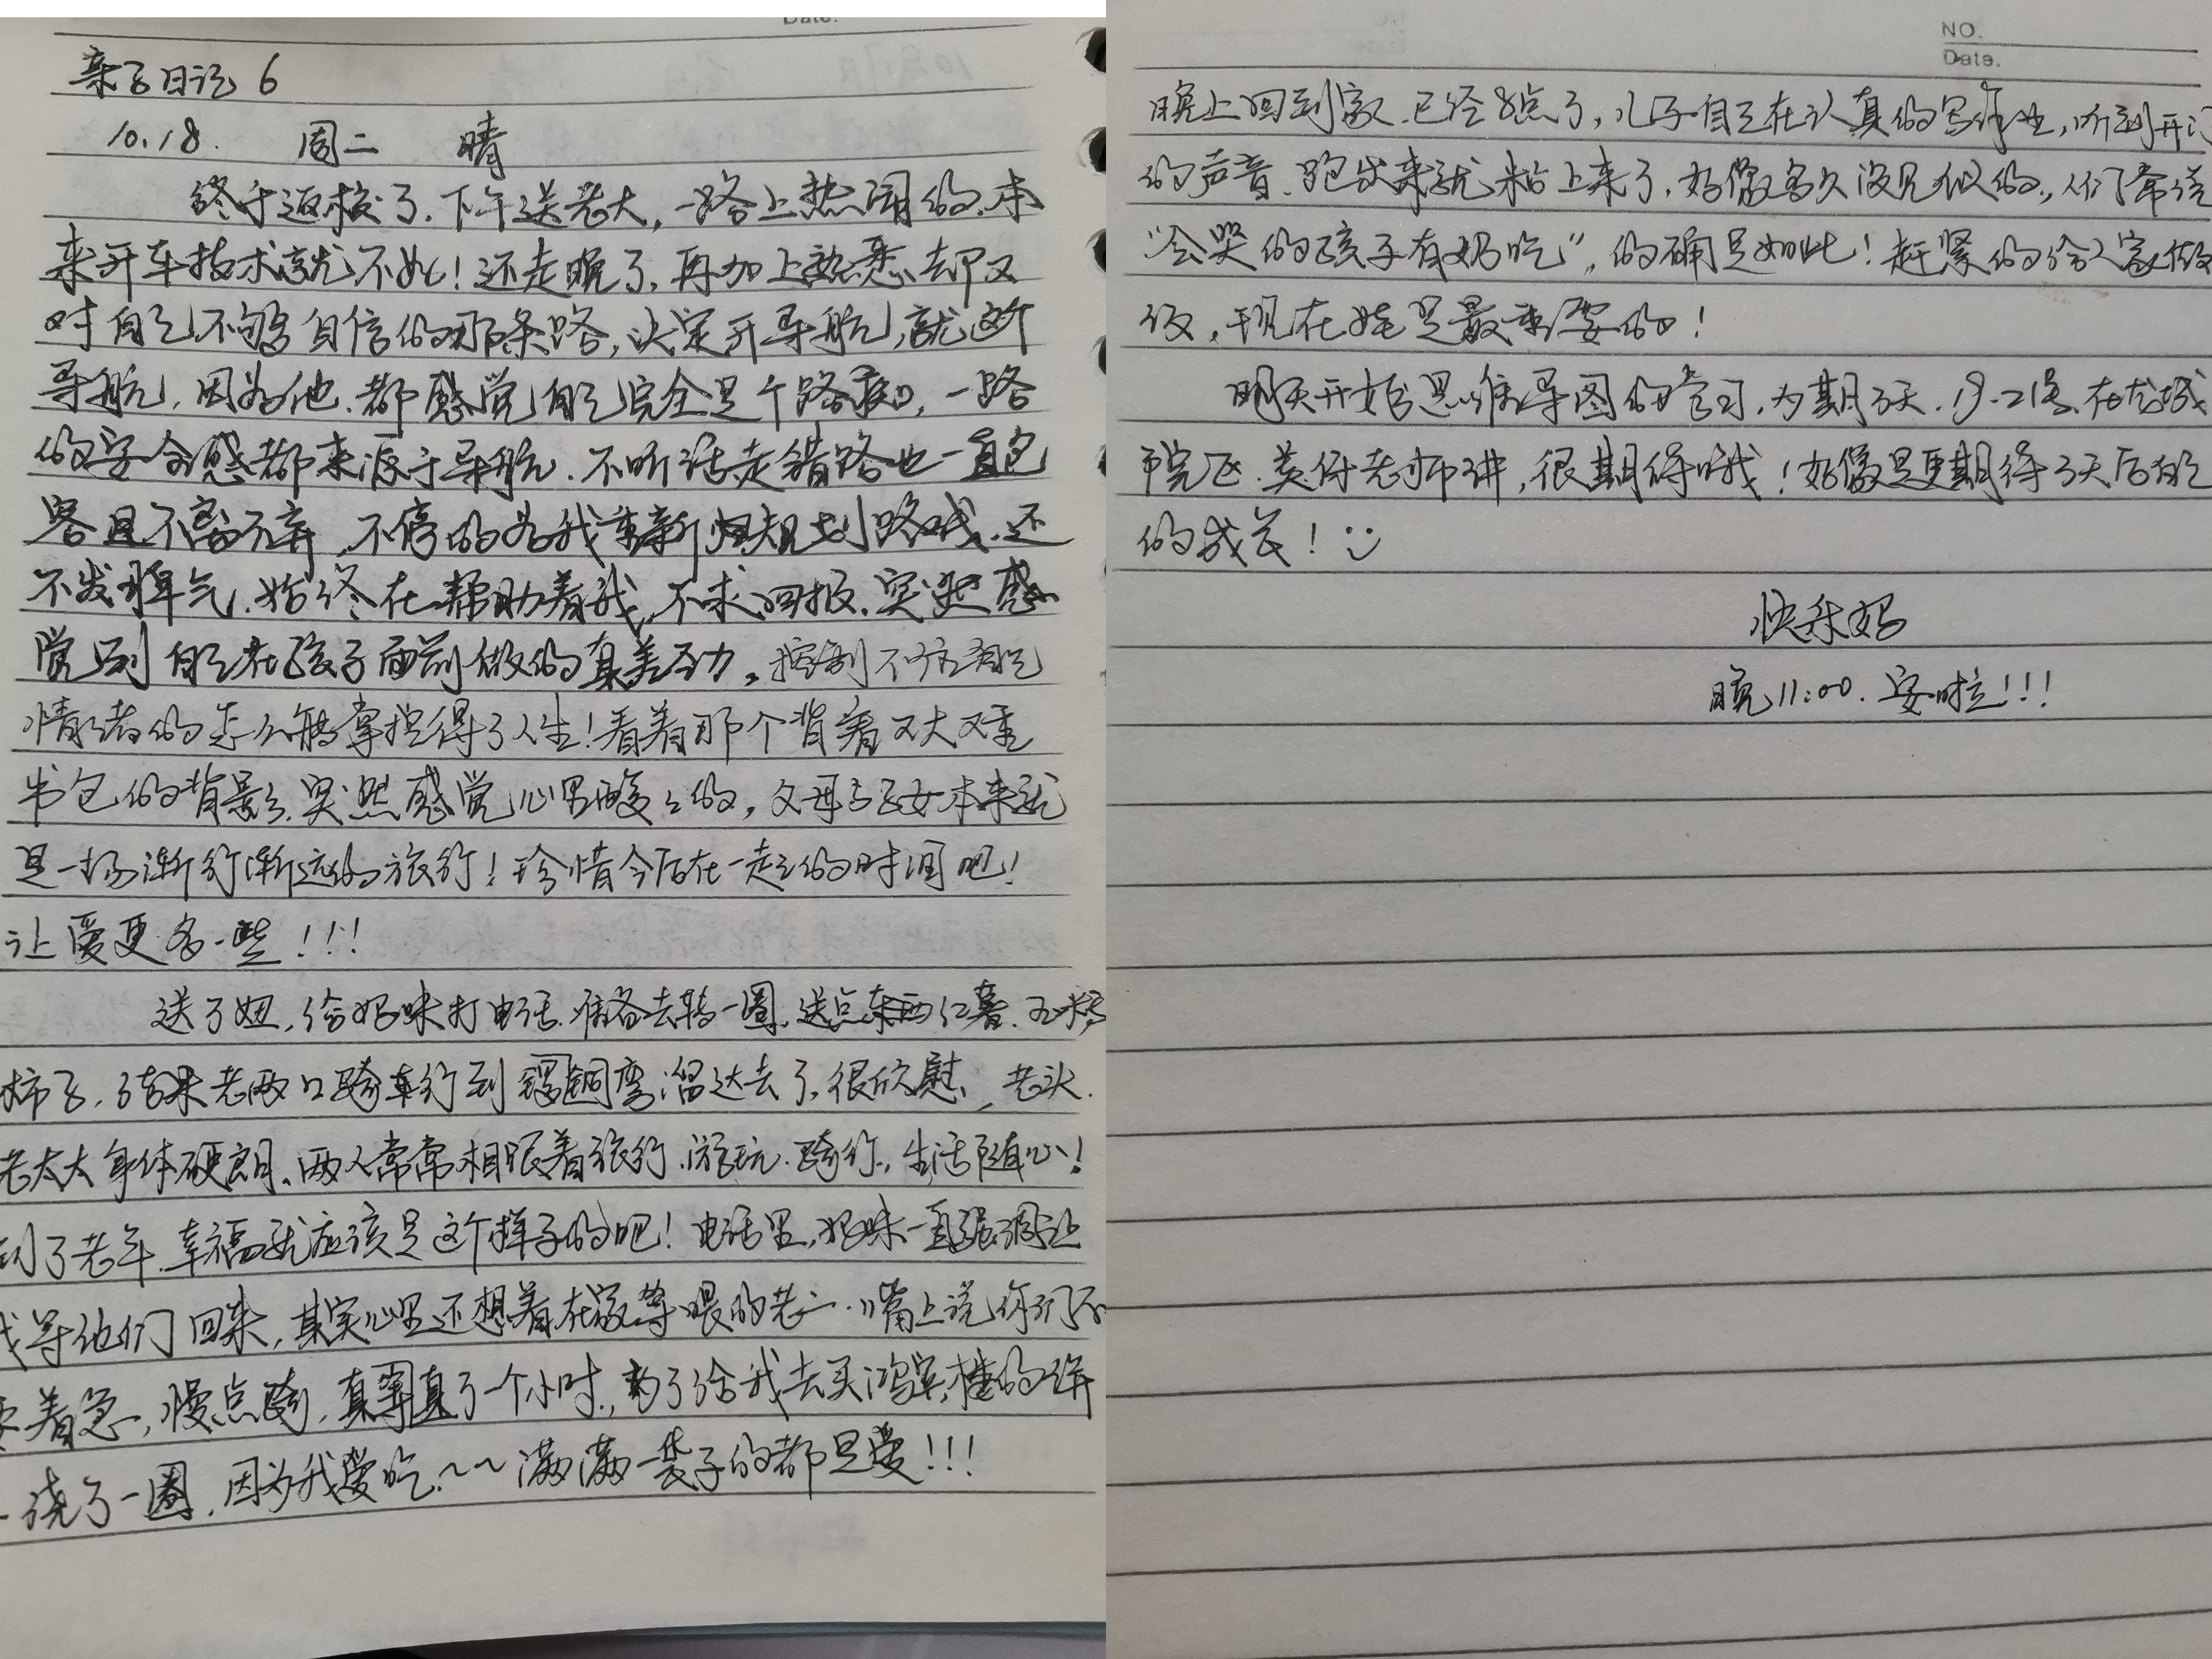 Date.
亲子日记 6
10.18. 周二 晴
终于返校了.下午送老大,一路上热闹的.本
来开车技术就不如!还走晚了,再加上熟悉却又
对自己不够自信的那条路,决定开导航,就这个
导航,因为他.都感觉自己完全是个路痴,一路
的安全感都来源于导航.不听话走错路也一直包
容且不离不弃,不停的为我重新规划路线.还
不发脾气.始终在帮助着我,不求回报.突然感
觉到自己在孩子面前做的真差劲。控制不住自己
情绪的怎么能掌控得了人生!看着那个背着又大又重
书包的背影.突然感觉心里酸々的,父母子女本来就
是一场渐行渐远的旅行!珍惜今后在一起的时间吧!
让爱更多一些!!!
送了妞,给妈咪打电话.准备去转一圈.送点东西红薯.玉米糁
柿子,结果老两口骑车行到 弯溜达去了,很欣慰、老头.
老太太身体硬朗、两人常常相跟着旅行.游玩.骑行.,生活随心!
到了老年.幸福就应该是这个样子的吧!电话里,妈咪一直强调让
我等他们回来,其实心里还想着在家等喂的老二.嘴上说你们不
要着急,慢点骑,真真了一个小时,为了给我去买鸿宾楼的饼
绕了一圈,因为我爱吃.~~满满一袋子的都是爱!!!
NO.
Date.
晚上回到家.已经8点了,儿子自己在认真的写作业,听到开门
的声音.跑出来就粘上来了.好像多久没见似的.,人们常说
"会哭的孩子有奶吃",的确是如此!赶紧的给人家做
饭,现在娃是最重要的!
明天开始思维导图的学习,为期3天.19-21号.在龙城
市院区.英仔老师讲,很期待哦!好像是更期待3天后自己
的成长!
快乐妈
晚11:00.安啦!!!